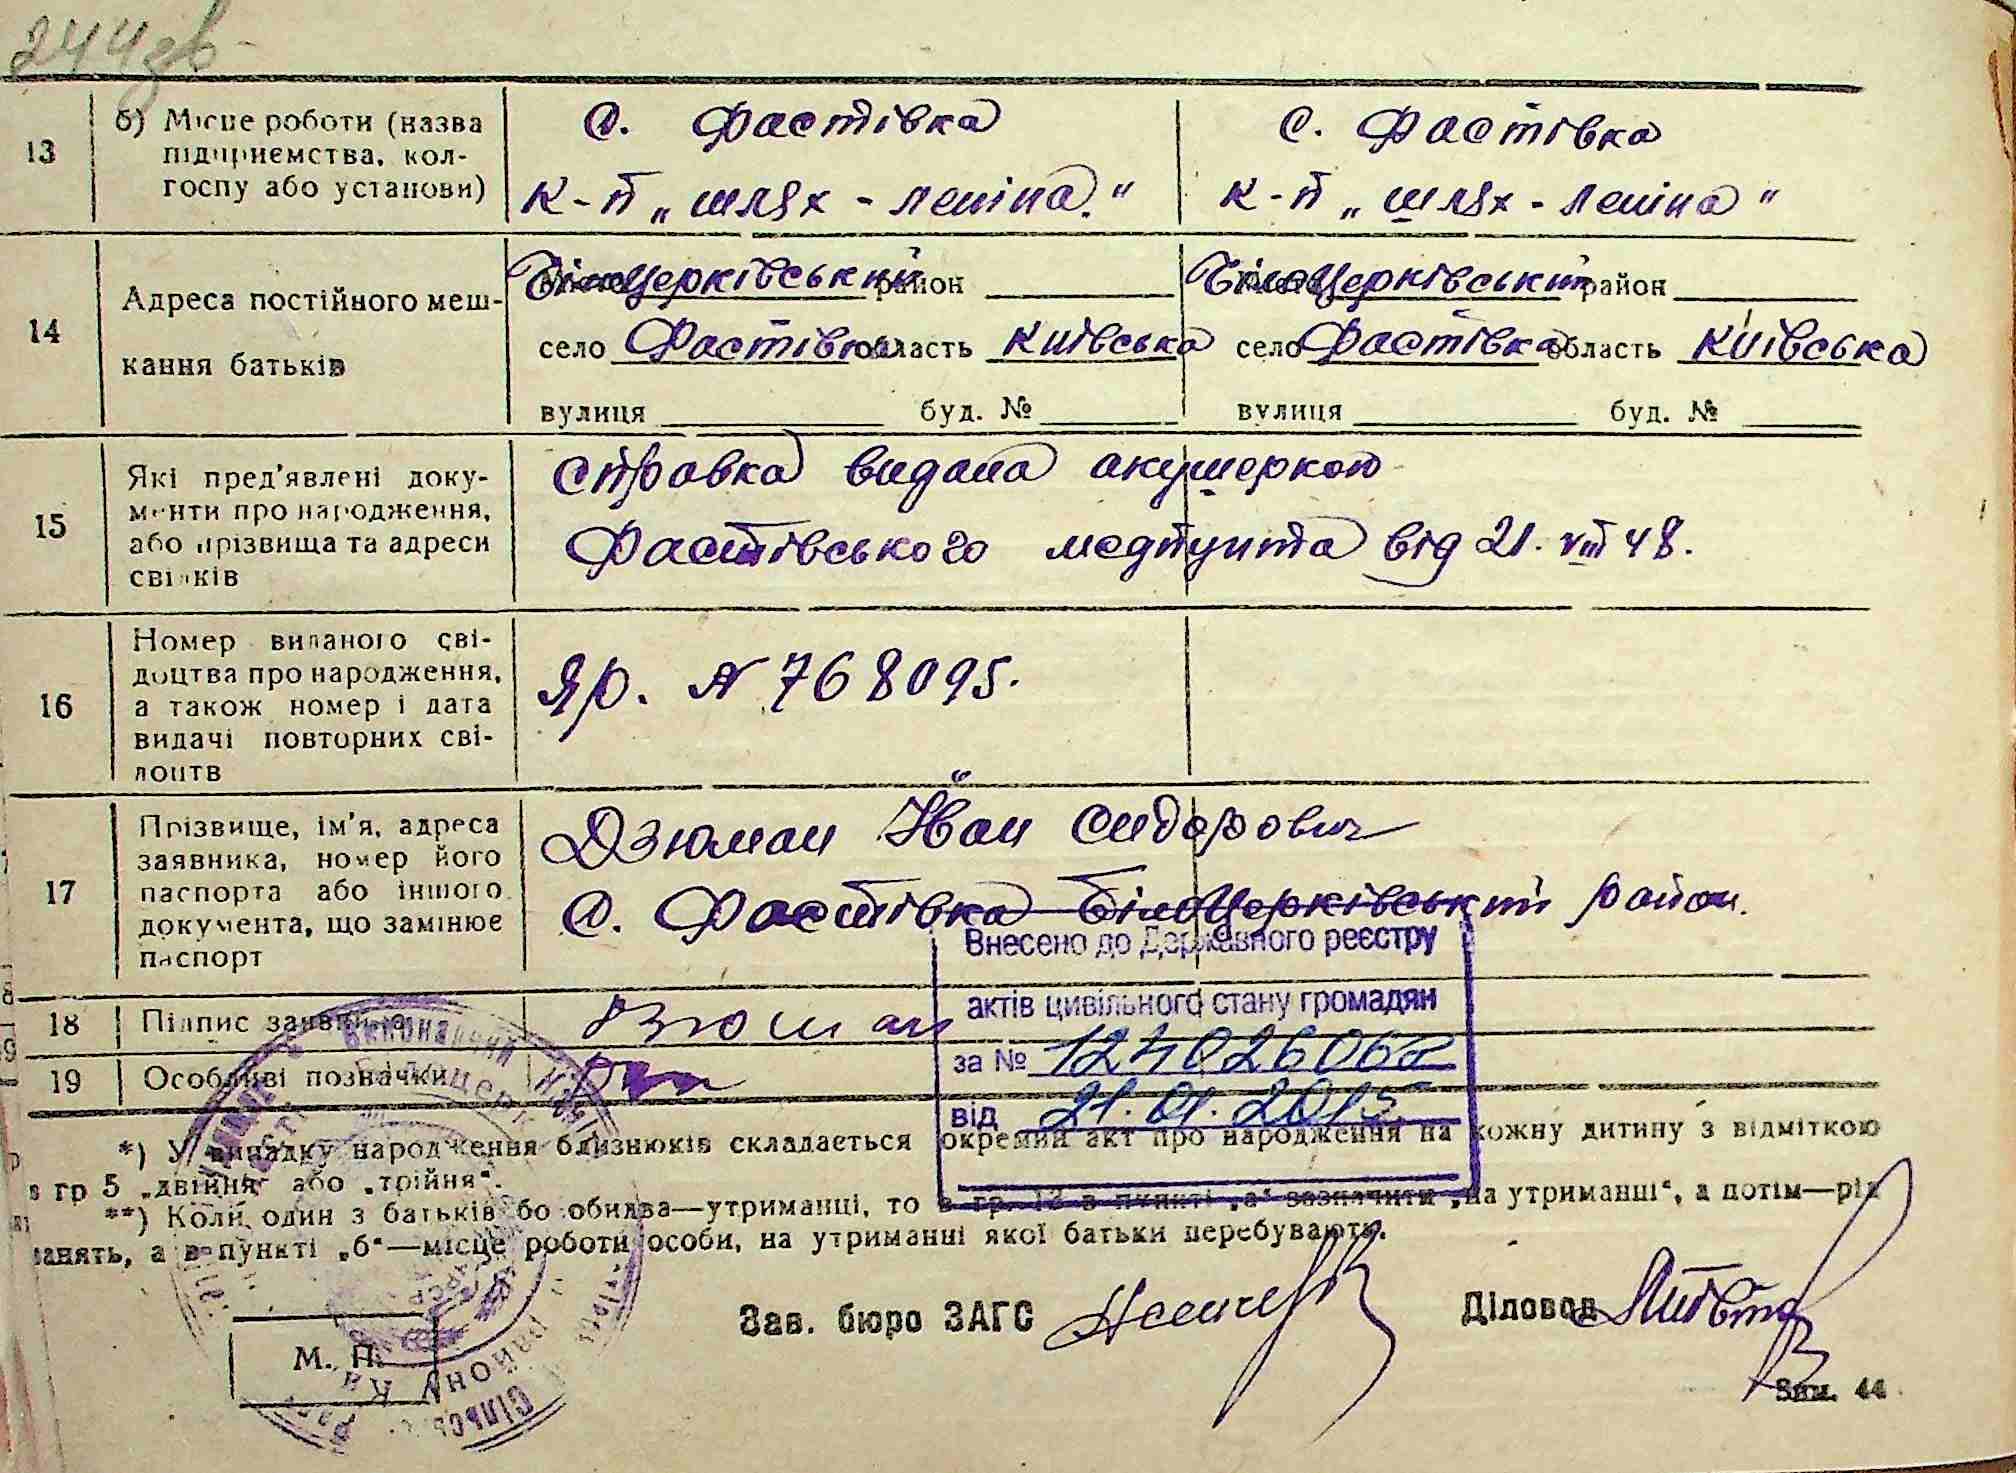 244зв
13
б) Місце роботи (назва
підприємства, кол-
госпу або установи)
с. Фастівка
к-п „шлях - леніна."
с. Фастівка
к-п „шлях - леніна"
14
Адреса постійного меш-
кання батьків
Білоцерківський район
село Фастівка область Київська
вулиця буд. №
Білоцерківський район
село Фастівка область Київська
вулиця буд. №
15
Які пред'явлені доку-
менти про народження,
або прізвища та адреси
свідків
справка видана акушеркою
Фастівського медпункта від 21. VIII 48.
16
Номер виданого сві-
доцтва про народження,
а також номер і дата
видачі повторних сві-
доцтв
ЯР. № 768095.
17
Прізвище, ім'я, адреса
заявника, номер його
паспорта або іншого
документа, що замінює
паспорт
Дзюман Іван Сидорович
с. Фастівка Білоцерківський район.
18
Підпис заявника
Дзюман
19
Особливі позначки
Внесено до Державного реєстру
актів цивільного стану громадян
за №
від 21.01.2015
*) У випадку народження близнюків складається окремий акт про народження на кожну дитину з відміткою
в гр 5 „двійня" або „трійня".
**) Коли один з батьків бо обидва—утриманці, то в гр. 13 в пункті „а" зазначити „на утриманні", а потім—рід
занять, а в пункті „б"—місце роботи особи, на утриманні якої батьки перебувають.
Зав. бюро ЗАГС
Діловод
М. П.
Зам. 44